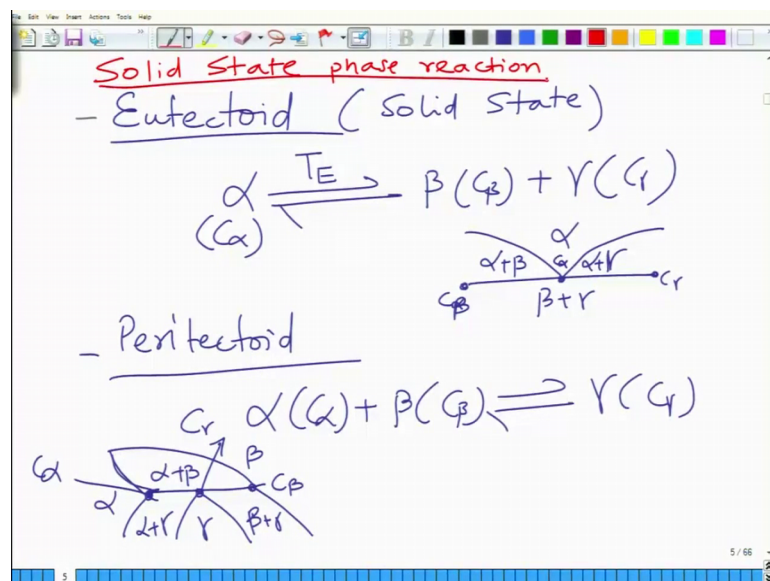 File Edit View Insert Actions Tools Help
Solid State phase reaction
- Eutectoid (Solid State)
α ⇌ β(Cβ) + γ(Cγ)
T_E
(Cα)
α
α+β Cα α+γ
Cβ Cγ
β+γ
- Peritectoid
α(Cα) + β(Cβ) ⇌ γ(Cγ)
Cγ
β
Cα α+β Cβ
α α+γ γ β+γ
5 / 66
5